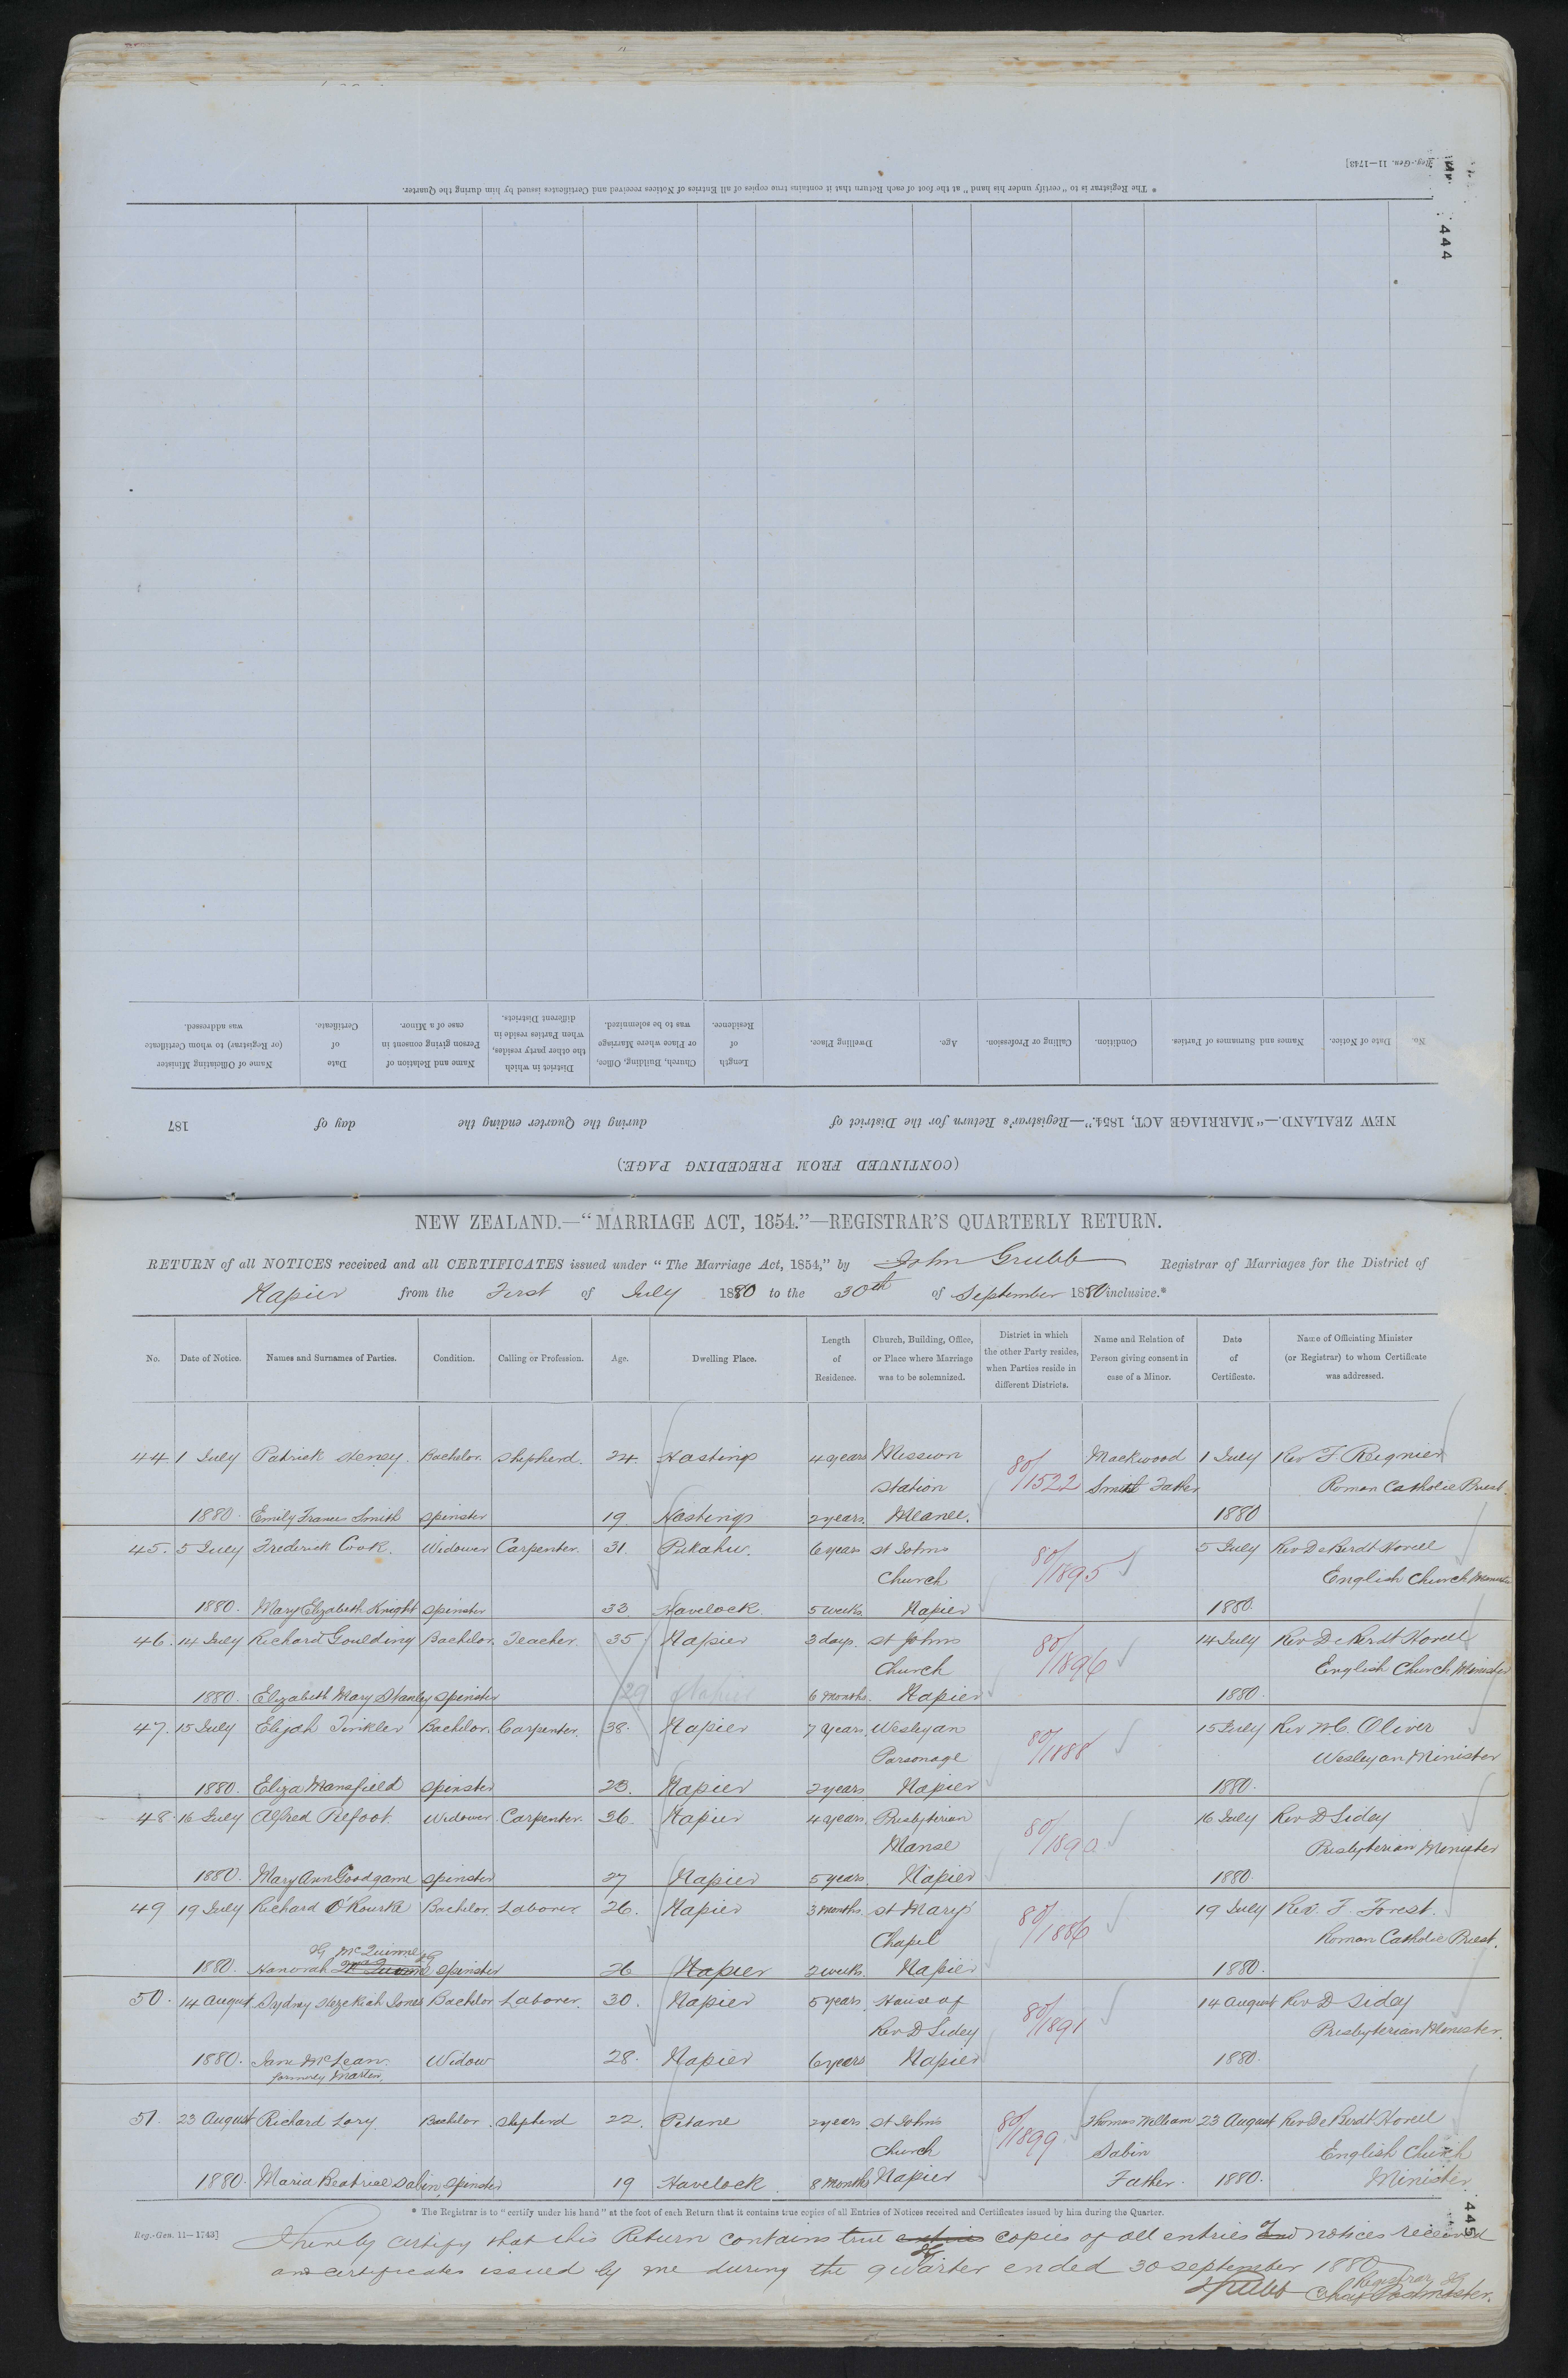 Reg.-Gen. 11—1743]
* The Registrar is to "certify under his hand" at the foot of each Return that it contains true copies of all Entries of Notices received and Certificates issued by him during the Quarter.
444
No. Date of Notice. Names and Surnames of Parties. Condition. Calling or Profession. Age. Dwelling Place. Length of Residence. Church, Building, Office, or Place where Marriage was to be solemnized. District in which the other party resides, when Parties reside in different Districts. Name and Relation of Person giving consent in case of a Minor. Date of Certificate. Name of Officiating Minister (or Registrar) to whom Certificate was addressed.
NEW ZEALAND.—"MARRIAGE ACT, 1854."—Registrar's Return for the District of during the Quarter ending the day of 187
(CONTINUED FROM PRECEDING PAGE.)
NEW ZEALAND.—"MARRIAGE ACT, 1854."—REGISTRAR'S QUARTERLY RETURN.
RETURN of all NOTICES received and all CERTIFICATES issued under "The Marriage Act, 1854," by John Grubb Registrar of Marriages for the District of
Napier from the First of July 1880 to the 30th of September 1880 inclusive.*
No. Date of Notice. Names and Surnames of Parties. Condition. Calling or Profession. Age. Dwelling Place. Length of Residence. Church, Building, Office, or Place where Marriage was to be solemnized. District in which the other Party resides, when Parties reside in different Districts. Name and Relation of Person giving consent in case of a Minor. Date of Certificate. Name of Officiating Minister (or Registrar) to whom Certificate was addressed.
44. 1 July Patrick Heney. Bachelor. Shepherd. 24. Hastings 4 years Mission 80/1522 Mackwood 1 July Rev F. Regnier
Station Smith Father Roman Catholic Priest.
1880. Emily Frances Smith Spinster 19. Hastings 2 years. Meanee. 1880
45. 5 July Frederick Cook. Widower Carpenter. 31. Pukahu. 6 years St Johns 80/1895 5 July Rev De Berdt Hovell
Church English Church Minister
1880. Mary Elizabeth Knight Spinster 33 Havelock. 5 weeks. Napier 1880.
46. 14 July Richard Goulding Bachelor. Teacher. 35 Napier 3 days. St Johns 80/1896 14 July Rev De Berdt Hovell
Church English Church Minister
1880. Elizabeth Mary Stanley Spinster 29 Napier 6 Months. Napier 1880.
47. 15 July Elijah Tinkler Bachelor. Carpenter. 38. Napier 7 Years. Wesleyan 80/1888 15 July Rev W.C. Oliver
Parsonage Wesleyan Minister
1880. Eliza Mansfield Spinster 23. Napier 2 years Napier 1880.
48. 16 July Alfred Refoot. Widower Carpenter. 36. Napier 4 years. Presbyterian 80/1890 16 July Rev D Sidey
Manse Presbyterian Minister
1880. Mary Ann Goodgame Spinster 27 Napier 5 years. Napier 1880.
49 19 July Richard O'Rourke Bachelor. Laborer. 26. Napier 3 Months. St Marys 80/1886 19 July Rev. F. Forest.
Chapel Roman Catholic Priest.
JG McQuinne JG
1880. Hanorah Spinster 26 Napier 2 weeks. Napier 1880.
50. 14 August Sydney Hezekiah Jones Bachelor Laborer. 30. Napier 5 years. House of 80/1891 14 August Rev D Sidey
Rev D Sidey Presbyterian Minister.
1880. Jane McLean Widow 28. Napier 6 years Napier 1880.
formerly Marten.
51. 23 August Richard Lory Bachelor. Shepherd 22. Petane 2 years St Johns 80/1899 Thomas William 23 August Rev De Berdt Hovell
Church Sabin English Church
1880. Maria Beatrice Sabin Spinster 19 Havelock. 8 Months Napier Father. 1880. Minister
* The Registrar is to "certify under his hand" at the foot of each Return that it contains true copies of all Entries of Notices received and Certificates issued by him during the Quarter.
445
Reg.-Gen. 11—1743]
I hereby certify that this Return contains true copies of all entries of notices received
and certificates issued by me during the quarter ended 30 September 1880
Registrar JG
JGrubb Chief Postmaster.